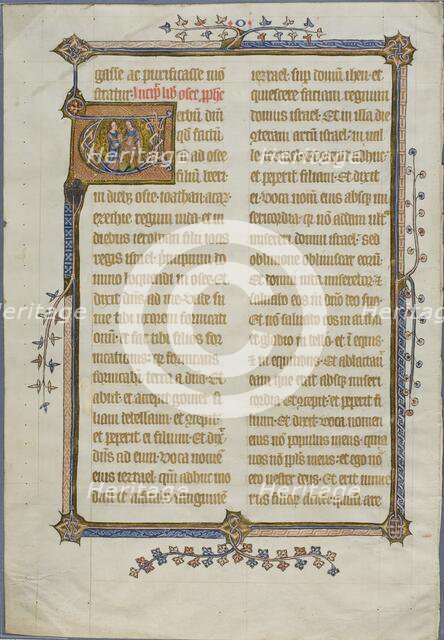 O
gasse ac purificasse mo
stratur. Incip lib osee pphe
erbum dni
qd factu
ad osee
filiu beeri
in dieb; osie ioathan acaz
ezechie regium iuda et in
diebus ieroboam filii ioas
regis israel. principium do
mino loquendi in osee Et
dixit dns ad me Uade su
me tibi uxorem fornicati
onum et fac tibi filios for
nicationis
fornicabit terra a dno Et
abiit et accepit gomer fi
liam debelaim et cepit
et peperit ei filium Et dixt
dns ad eum Uoca nomen
eius iezrael qm adhuc mo
dicum et uisitabo sanguinem
iezrael sup domum ihen et
quiescere faciam regnum
domus israel Et in illa die
conteram arcu israel in ual
le
et peperit filiam Et dixit
ei Uoca nomen eius absq; mi
sericordia qr non addam ult
misereri domui israel sed
obliuione obliuiscar eoru
Et domui iuda miserebor Et
saluabo eos in dno deo suo
Et non saluabo eos in
et gladio in bello et in equis
et in equitibus Et ablactau
eam que erat absq; miseri
cordia Et cepit et peperit fi
lium Et dixit Uoca nomen
eius non populus meus quia
uos non ppls meus et ego non
ero uester deus Et erit nume
rus filiorum israel quasi are
Heritage
Heritage
Heritage
Heritage
Heritage
Heritage
Heritage